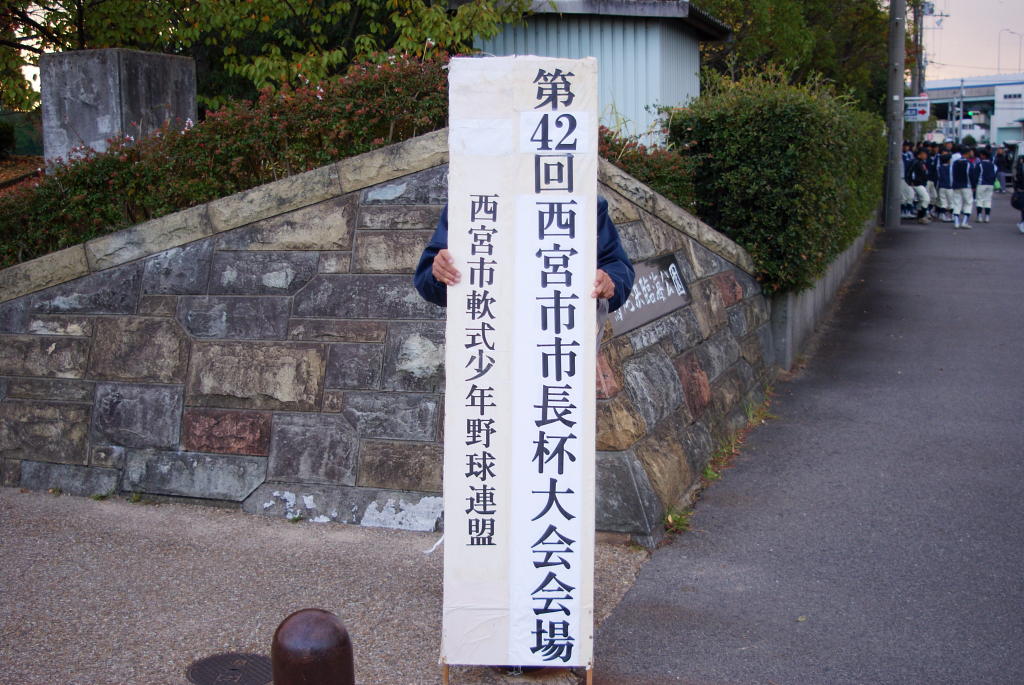 第42回西宮市市長杯大会会場
西宮市軟式少年野球連盟
浜臨海公園